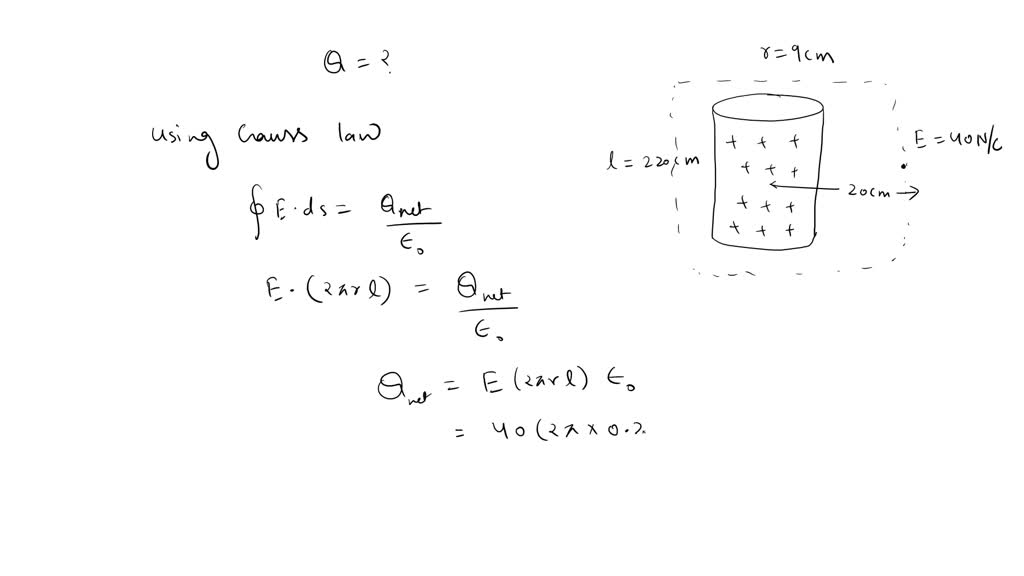 Q = ?
using Gauss law
∮ E · ds = Qnet / ϵ₀
E · (2πrl) = Qnet / ϵ₀
Qnet = E (2πrl) ϵ₀
= 40 (2π × 0.2
r = 9cm
l = 220cm
E = 40N/C
20cm
+ + +
+ + +
+ + +
+ + +